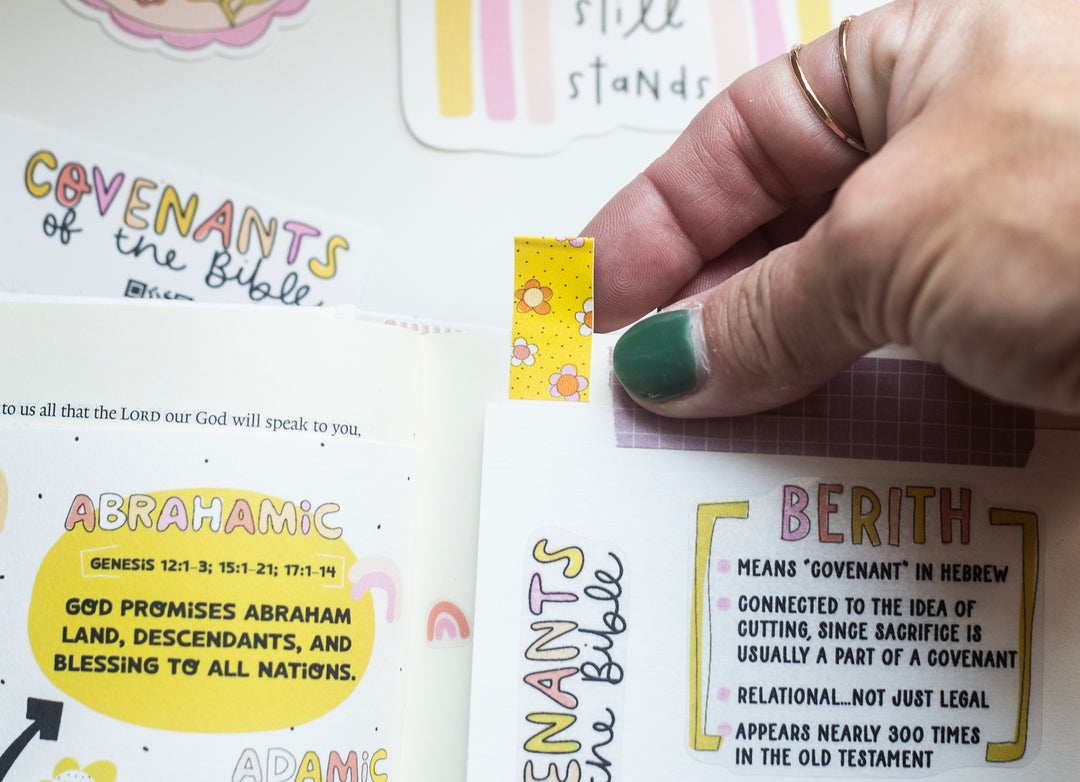 still
stands
COVENANTS
of the Bible
to us all that the LORD our God will speak to you,
ABRAHAMIC
GENESIS 12:1-3; 15:1-21; 17:1-14
GOD PROMISES ABRAHAM
LAND, DESCENDANTS, AND
BLESSING TO ALL NATIONS.
ADAMIC
ENANTS
the Bible
BERITH
MEANS "COVENANT" IN HEBREW
CONNECTED TO THE IDEA OF
CUTTING, SINCE SACRIFICE IS
USUALLY A PART OF A COVENANT
RELATIONAL...NOT JUST LEGAL
APPEARS NEARLY 300 TIMES
IN THE OLD TESTAMENT